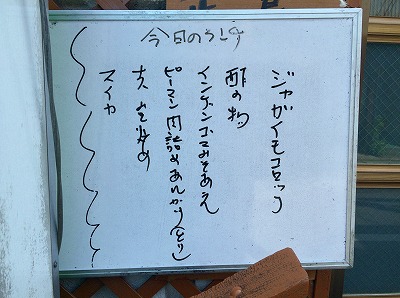 今日のうしす
ジャガイモコロッケ
酢の物
インゲンゴマみそあえ
ピーマン肉詰めあんかけ(とり)
大豆炒め
スイカ